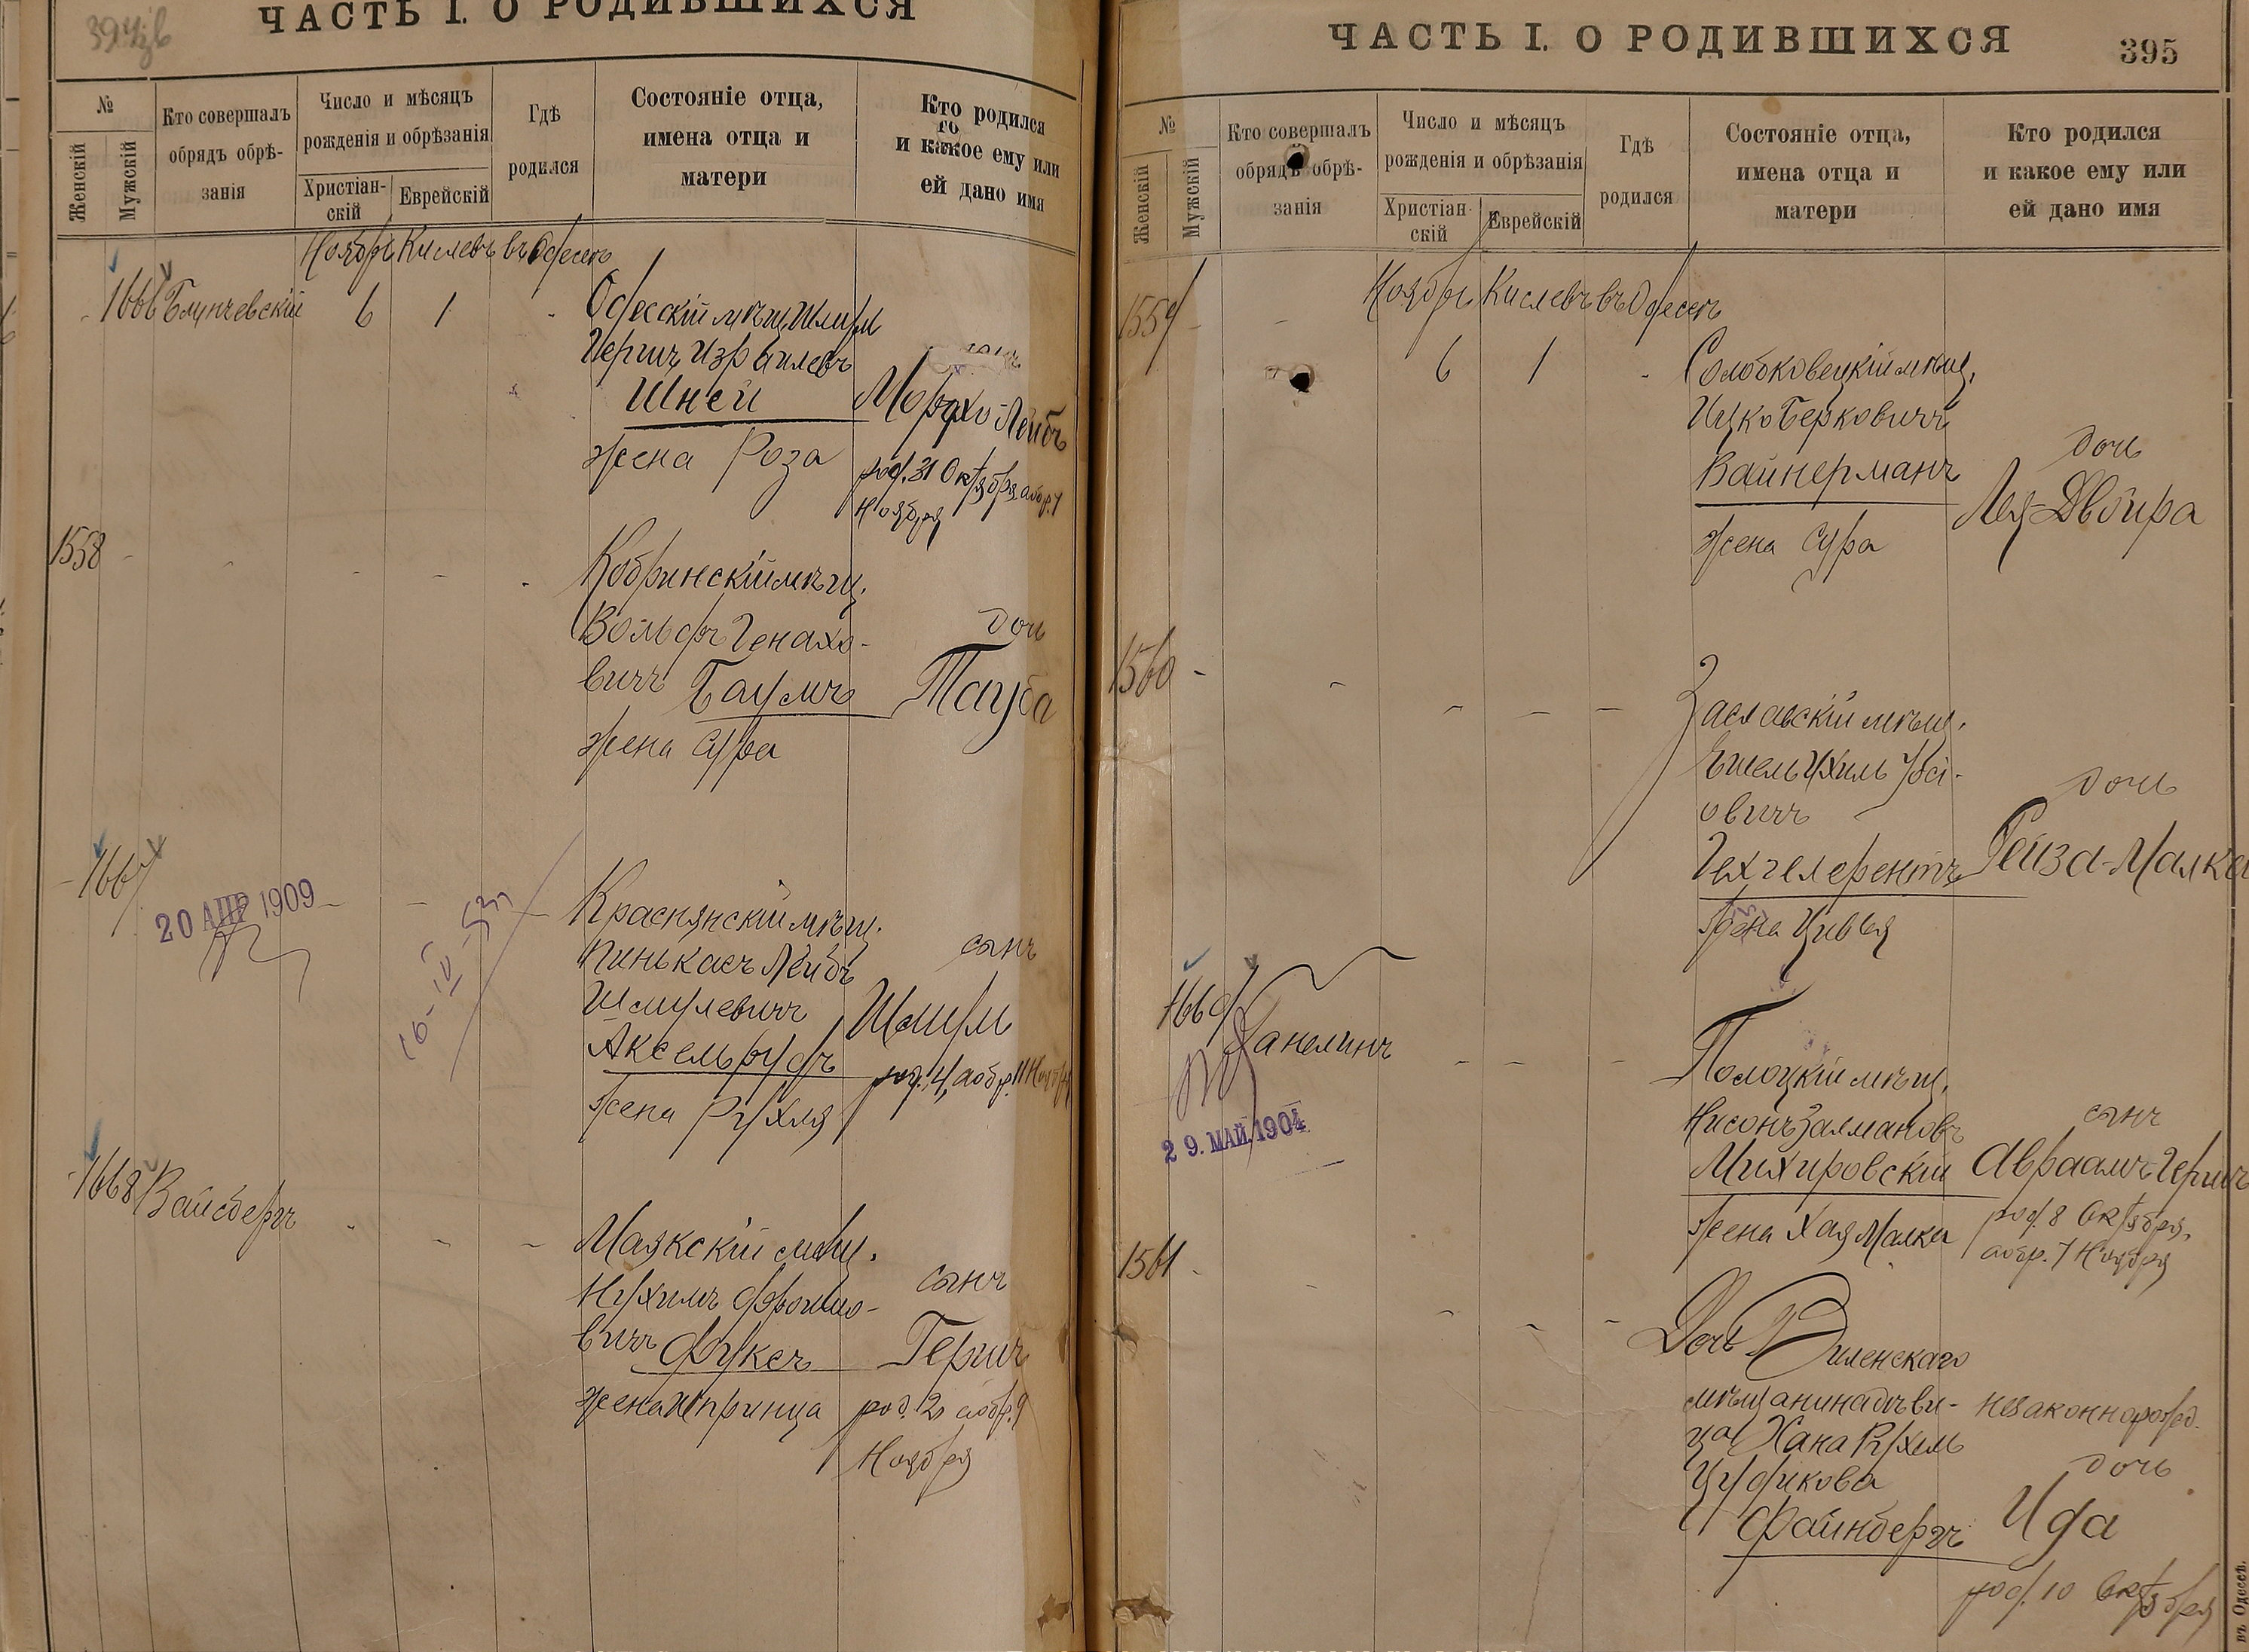 ЧАСТЬ I. О РОДИВШИХСЯ
№
Женскій
Мужскій
Кто совершалъ
обрядъ обрѣ-
занія
Число и мѣсяцъ
рожденія и обрѣзанія
Христіан-
скій
Еврейскій
Гдѣ
родился
Состояніе отца,
имена отца и
матери
Кто родился
и какое ему или
ей дано имя
Ноябрь Кислевъ въ Одессѣ
1666 6 1
Одесскій мѣщ. Шмуль
Гершъ Израилевъ
Шней
жена Роза
Мордхо-Лейбъ
род. 31 Октября а обр. 7
Ноября
1558
Кобринскій мѣщ.
Вольфъ Генахо-
вичъ Баумъ
жена Сура
дочь
Тауба
1667
20 АПР 1909
16-IV-53
Краснянскій мѣщ.
Пинькасъ Лейбъ
Шмулевичъ
Аксельрудъ
жена Рухля
сынъ
Шмуль
род. 4, а обр. 11 Ноября
1668 Вайсбергъ
Маякскій мѣщ.
Нухимъ Фроимо-
вичъ Фуксъ
жена Шпринца
сынъ
Гершъ
род. 2 а обр. 9
Ноября
ЧАСТЬ I. О РОДИВШИХСЯ
395
№
Женскій
Мужскій
Кто совершалъ
обрядъ обрѣ-
занія
Число и мѣсяцъ
рожденія и обрѣзанія
Христіан-
скій
Еврейскій
Гдѣ
родился
Состояніе отца,
имена отца и
матери
Кто родился
и какое ему или
ей дано имя
Ноябрь Кислевъ въ Одессѣ
1559 6 1
Солобковецкій мѣщ.
Ицко Берковичъ
Вайнерманъ
жена Сура
дочь
Лея-Двойра
1560
Заславскій мѣщ.
Ихиль Іосі-
овичъ
жена Цивья
дочь
Рейза-Малка
1669 Ханелинъ
29. МАЙ. 1904
Полоцкій мѣщ.
Нисонъ Залмановъ
Михировскій
жена Хая Малка
сынъ
Авраамъ-Гершъ
род. 8 Октября,
а обр. 7 Ноября
1561
Дочь Виленскаго
мѣщанина дѣви-
ца Хана Рухель
Цудикова
Файнбергъ
незаконнорожд.
дочь
Ида
род. 10 Октября
въ Одессѣ.